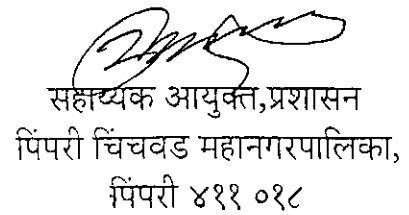 सहाय्यक आयुक्त,प्रशासन
पिंपरी चिंचवड महानगरपालिका,
पिंपरी ४११ ०१८